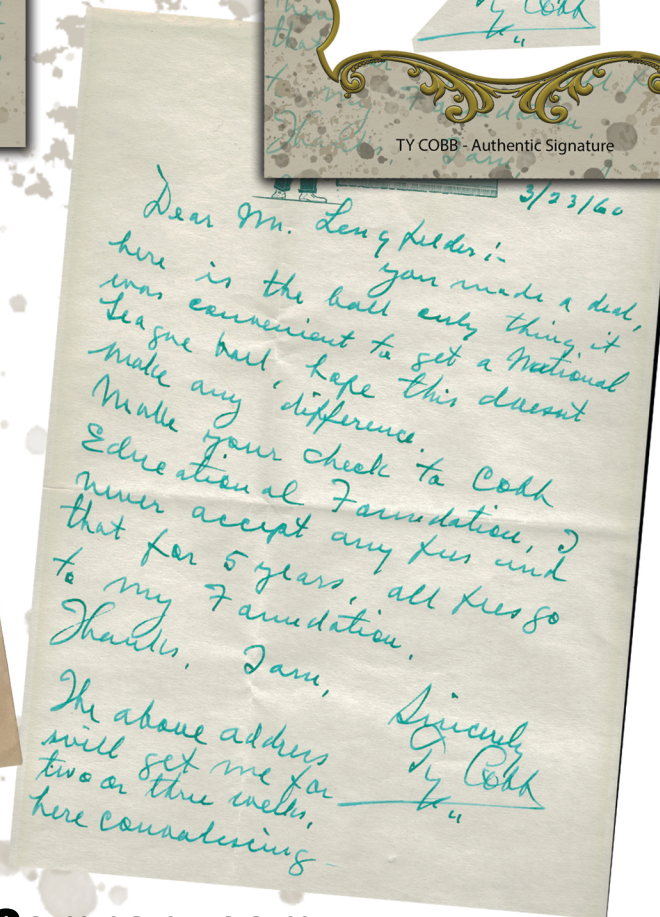 Ty Cobb
TY COBB - Authentic Signature
3/23/60
Dear Mr. Lengfelder :-
you made a deal,
here is the ball only thing it
was convenient to get a National
League ball, hope this doesnt
make any difference.
Make your check to Cobb
Educational Foundation, I
never accept any fees and
that for 5 years, all fees go
to my Foundation.
Thanks, I am,
Sincerely
Ty Cobb
The above address
will get me for
two or three weeks,
here convalescing -